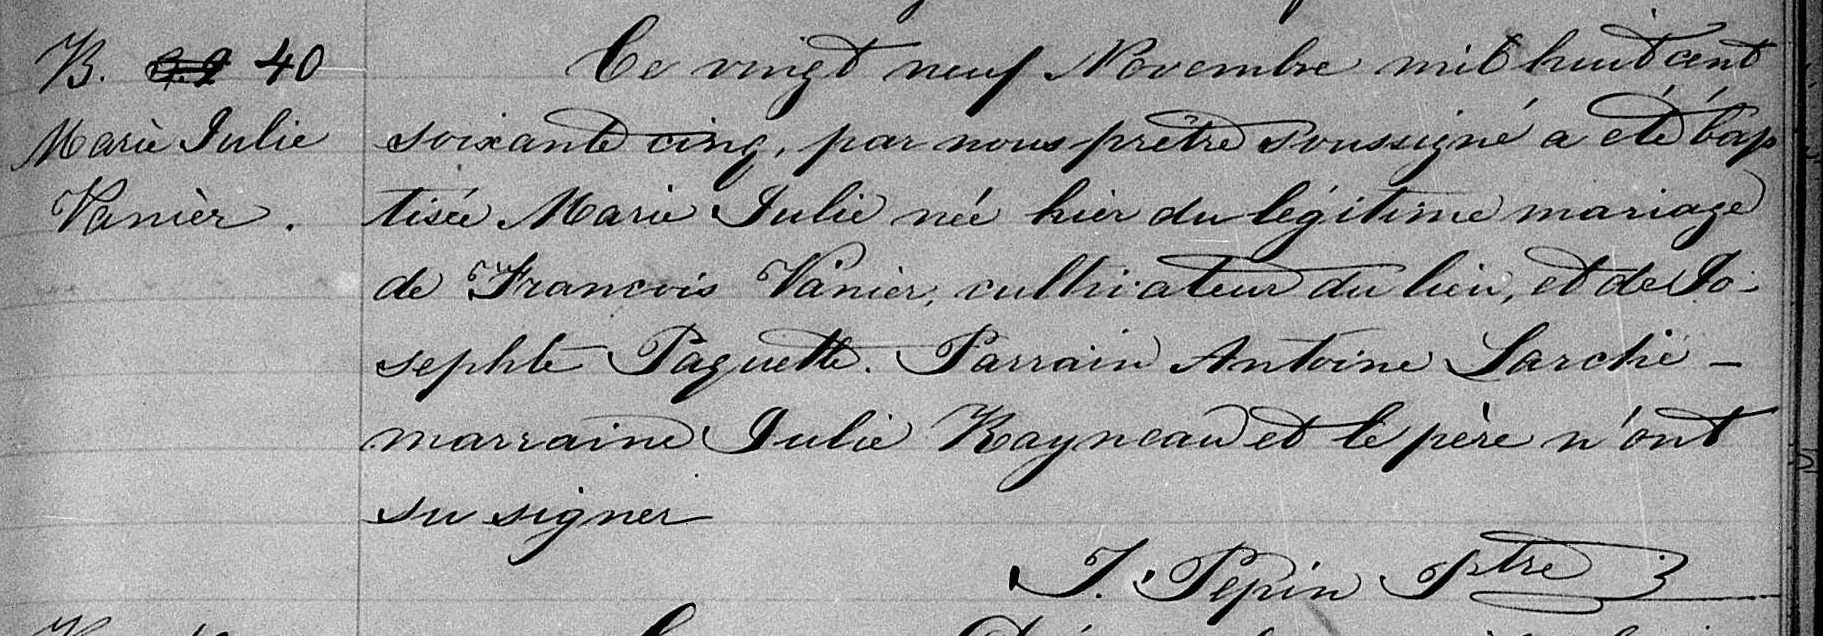 B. 40
Marie Julie
Vanier.
Ce vingt neuf Novembre mil huit cent
soixante cinq, par nous prêtre soussigné a été bap
tisée Marie Julie née hier du légitime mariage
de Francois Vanier, cultivateur du lieu, et de Jo-
sephte Paquette. Parrain Antoine Larché -
marraine Julie Rayneau et le père n'ont
su signer
J. Pepin Ptre